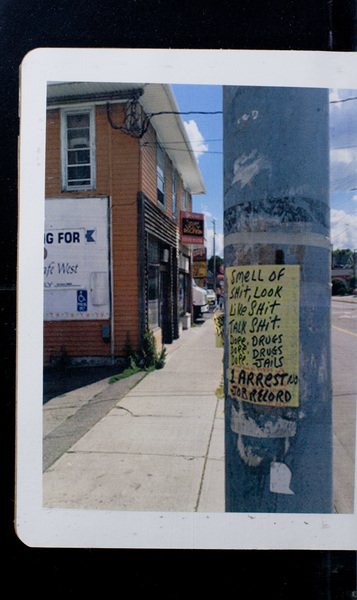 G FOR
afe West
SMELL OF
SHIT, LOOK
LIKE SHIT
TALK SHIT.
DOPE, DRUGS
DOPE, DRUGS
DOPE, JAILS
1 ARREST NO
RECORD